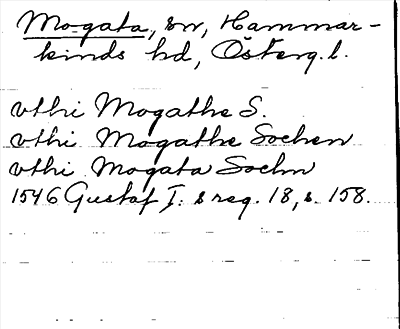 Mogata, sn, Hammar-
kinds hd, Österg. l.
vthi Mogathe S.
vthi Mogathe Sochen
vthi Mogata Sochn
1546 Gustaf I:s reg. 18, s. 158.